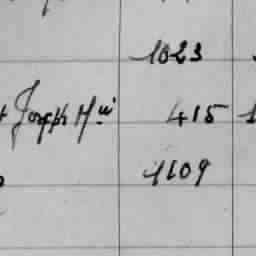 1023
Joseph H^ui 415
1109